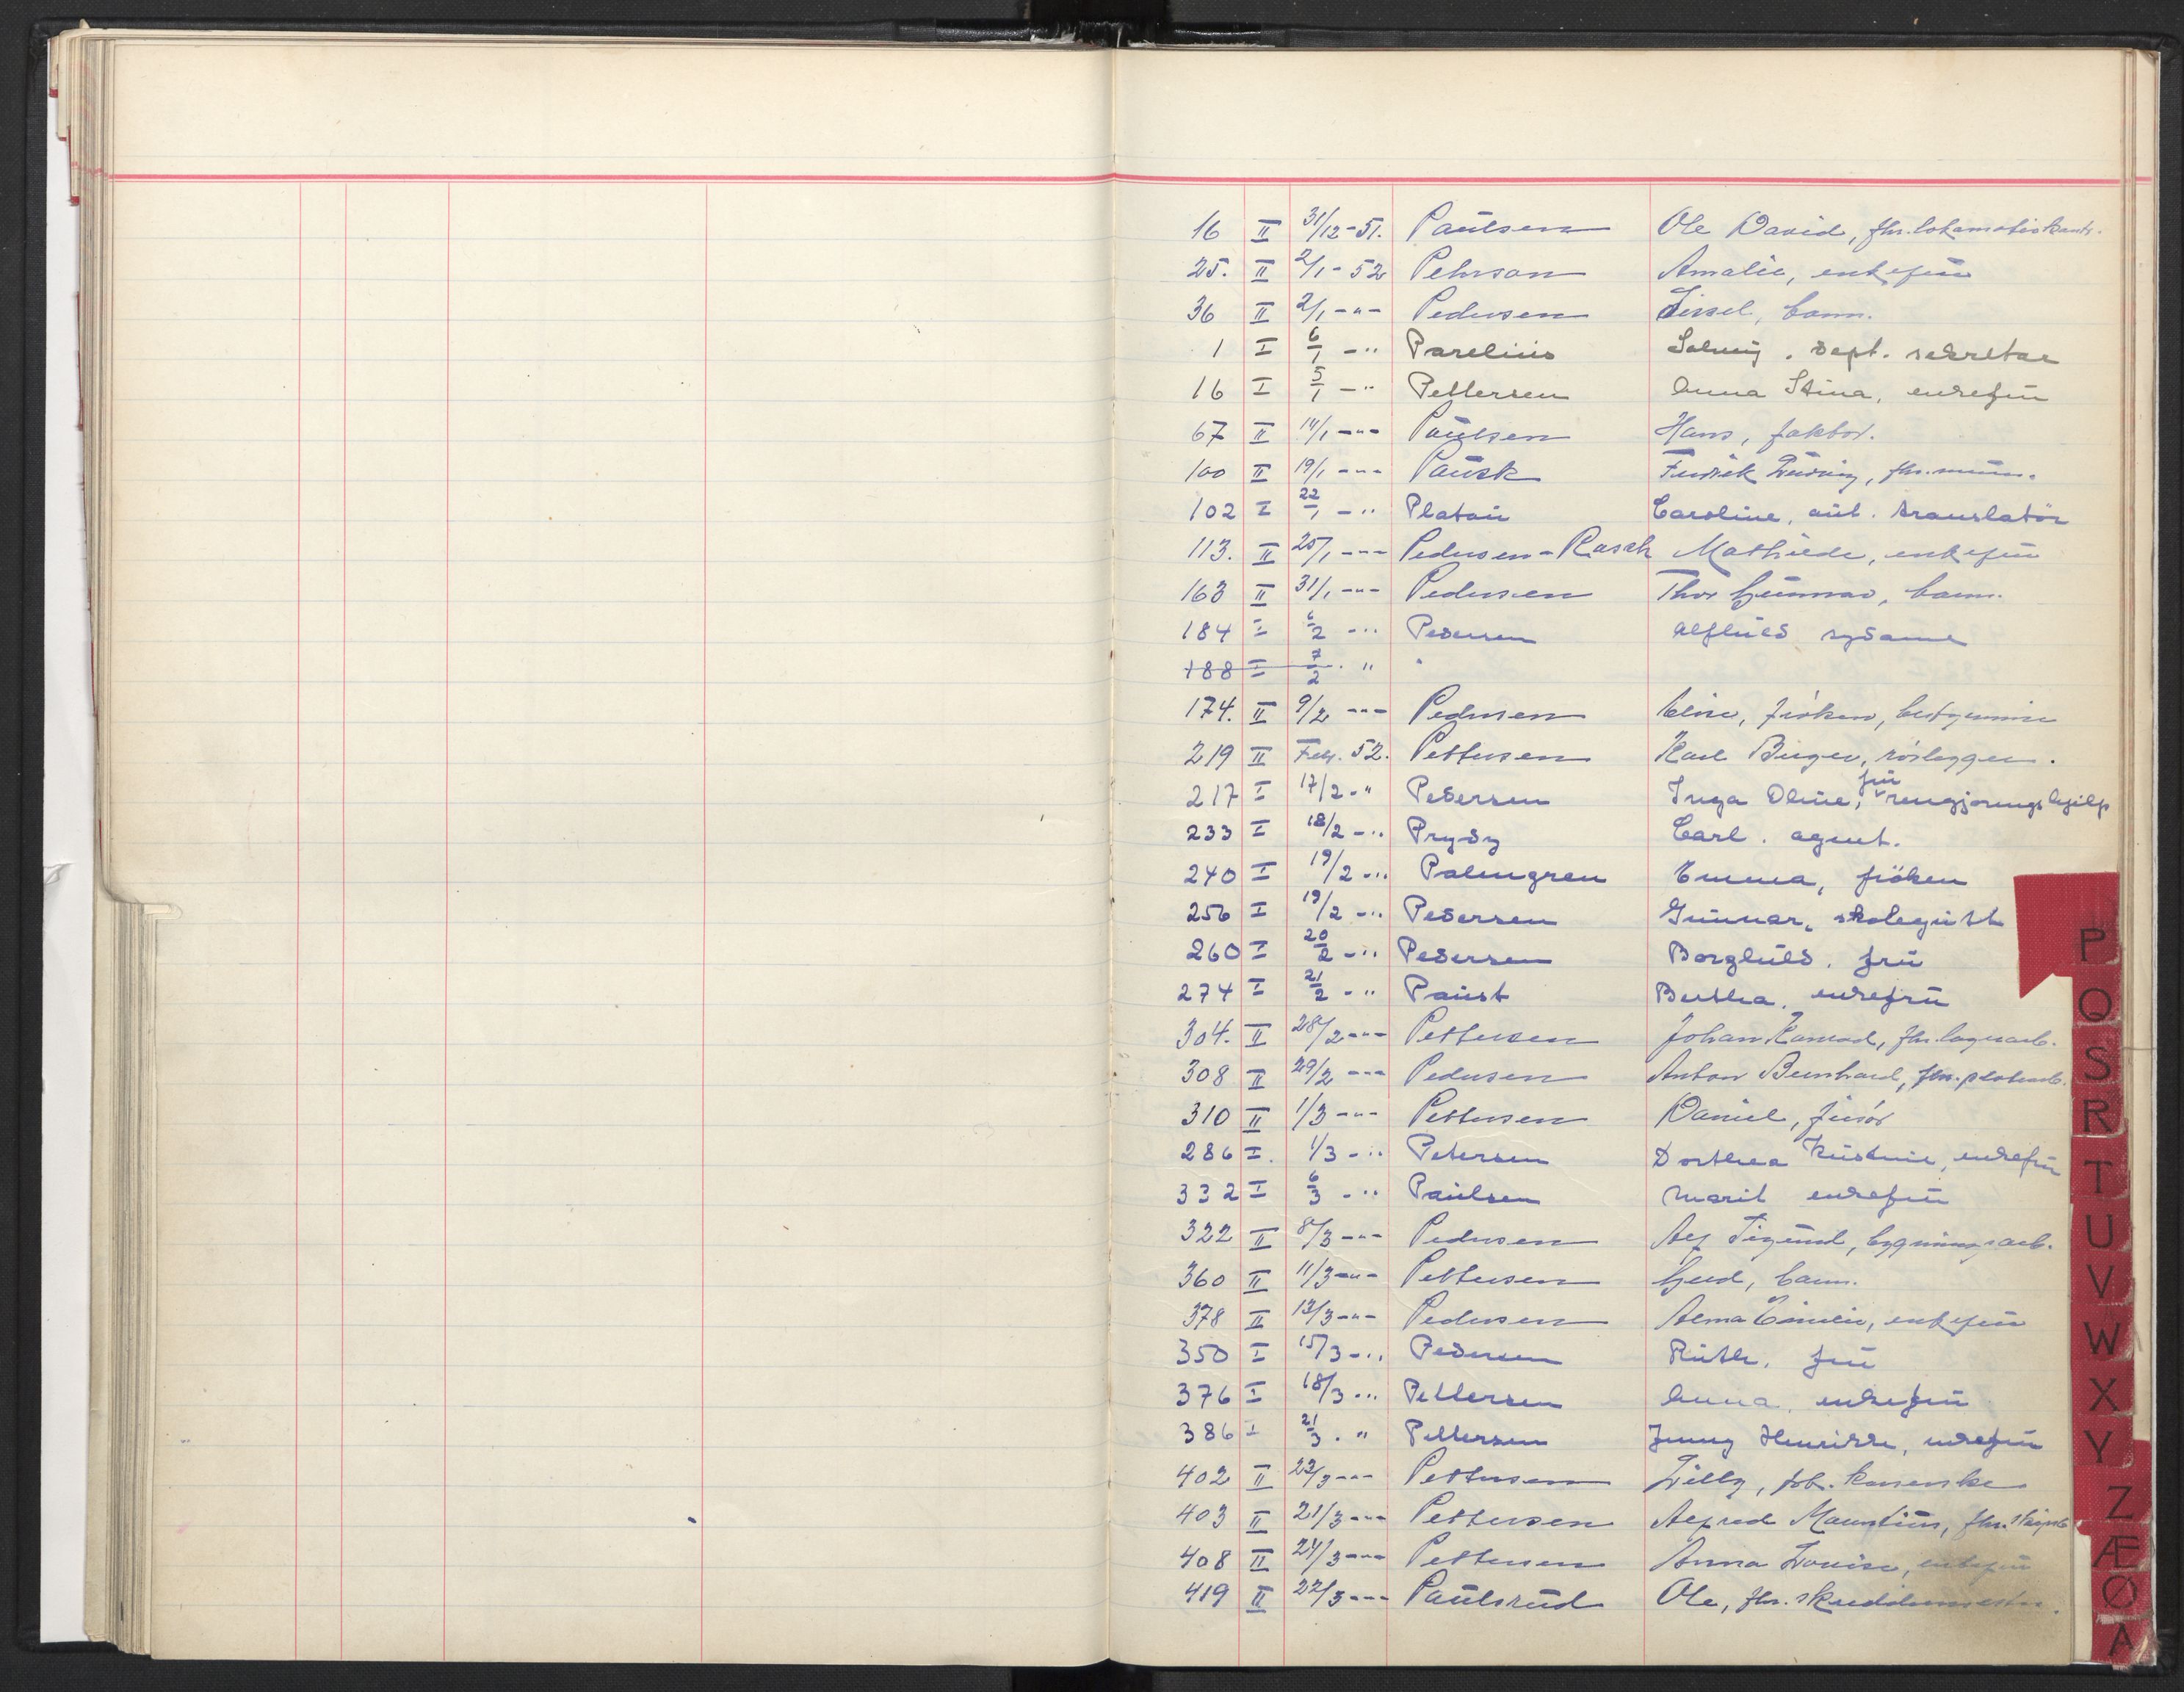 16 II 31/12-51. Paulsen Ole David, fhv. lokomotiv
25. II 2/1-52 Pehrson Amalie, enkefru
36 II 2/1 -"- Pedersen Sissel, barn.
1 I 6/1 -" Parelius Solveig. dept. sekretær
16 I 5/1 -" Pettersen Anna Stina, enkefru
67 II 14/1 -"- Paulsen Hans, faktor.
100 II 19/1 -"- Pausk Fredrik, fhv. murm.
102 I 22/1 -" Platou Caroline, aut. translatør
113. II 25/1 -"- Pedersen-Rasch Mathilde, enkefru
163 II 31/1 -"- Pedersen Thor Gunnar, barn.
184 I 6/2 -" Pedersen Alfhild sydame
188 I 7/2 . " "
174. II 9/2 -"- Pedersen Elise, frøken, bestyrerinne
219 II Febr. 52. Pettersen Karl Birger, rørlegger.
217 I 17/2 -" Pedersen Inga Oline, fru rengjøringshjelp
233 I 18/2 -" Prydz Carl. agent.
240 I 19/2 -" Palmgren Emma, frøken
256 I 19/2 -" Pedersen Gunnar, skolegutt
260 I 20/2 -" Pedersen Borghild. fru
274 I 21/2 -" Paust Berthea. enkefru
304. II 28/2 -"- Pettersen Johan Konrad, fhv. lagerarb.
308 II 29/2 -"- Pedersen Anton Bernhard, fhv.
310 II 1/3 -"- Pettersen Daniel, frisør
286 I. 1/3 -" Petersen Dorthea Kristine, enkefru
332 I 6/3 -" Paulsen Marit enkefru
322 II 8/3 -"- Pedersen Alf Sigmund, bygningsarb.
360 II 11/3 -"- Pettersen Gerd, barn.
378 II 13/3 -"- Pedersen Alma Emilie, enkefru
350 I 15/3 -" Pedersen Ruth. fru
376 I 18/3 -" Pettersen Anna. enkefru
386 I 21/3 . " Pettersen Jenny Henrikke, enkefru
402 II 23/3 -"- Pettersen Willy,
403 II 21/3 -"- Pettersen Alfred Mauritius, fhv.
408 II 24/3 -"- Pettersen Anna Louise, enkefru
419 II 22/3 -"- Paulsrud Ole, fhv. skreddermester.
P
Q
S
R
T
U
V
W
X
Y
Z
Æ
Ø
A